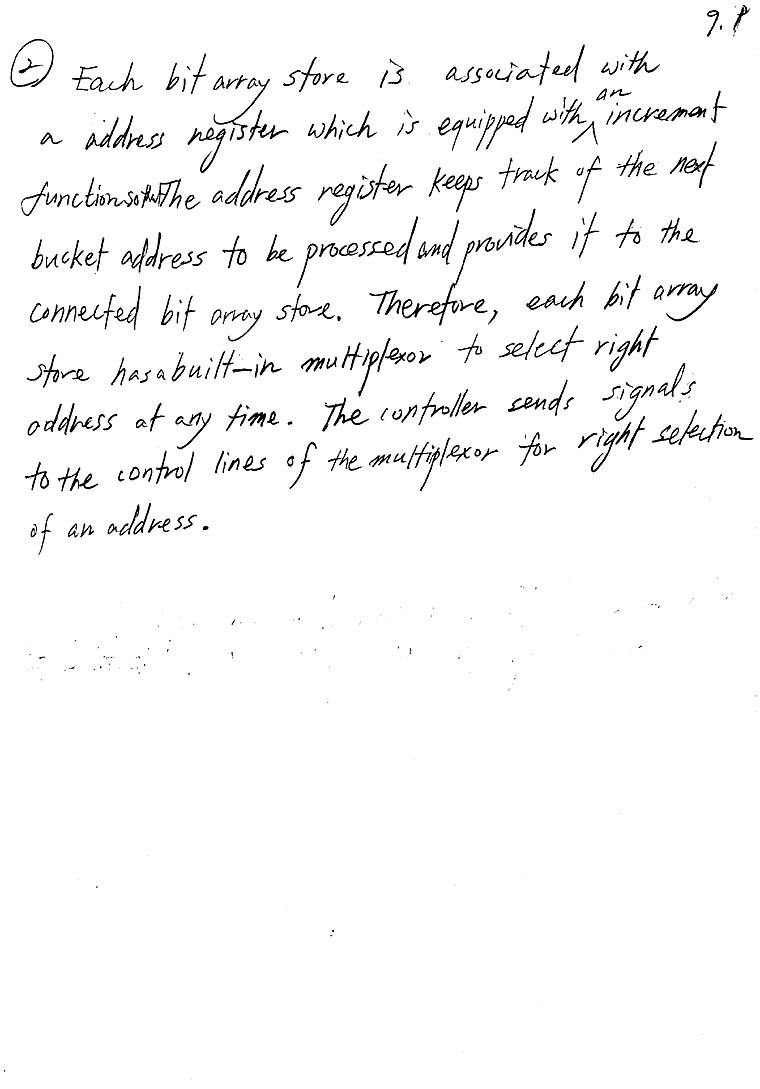 9.8
② Each bit array store is associated with
a address register which is equipped with an increment
function so that The address register keeps track of the next
bucket address to be processed and provides it to the
connected bit array store. Therefore, each bit array
store has a built-in multiplexor to select right
address at any time. The controller sends signals
to the control lines of the multiplexor for right selection
of an address.